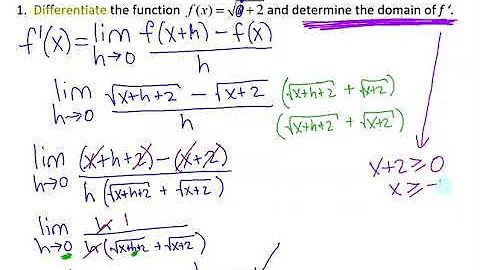 1. Differentiate the function f(x) = √x + 2 and determine the domain of f'.
f'(x) = lim h→0 f(x+h) − f(x) / h
lim h→0 √x+h+2 − √x+2 / h (√x+h+2 + √x+2) / (√x+h+2 + √x+2)
lim h→0 (x+h+2) − (x+2) / h(√x+h+2 + √x+2)
x+2 ≥ 0
x ≥ −
lim h→0 h 1 / h(√x+h+2 + √x+2)